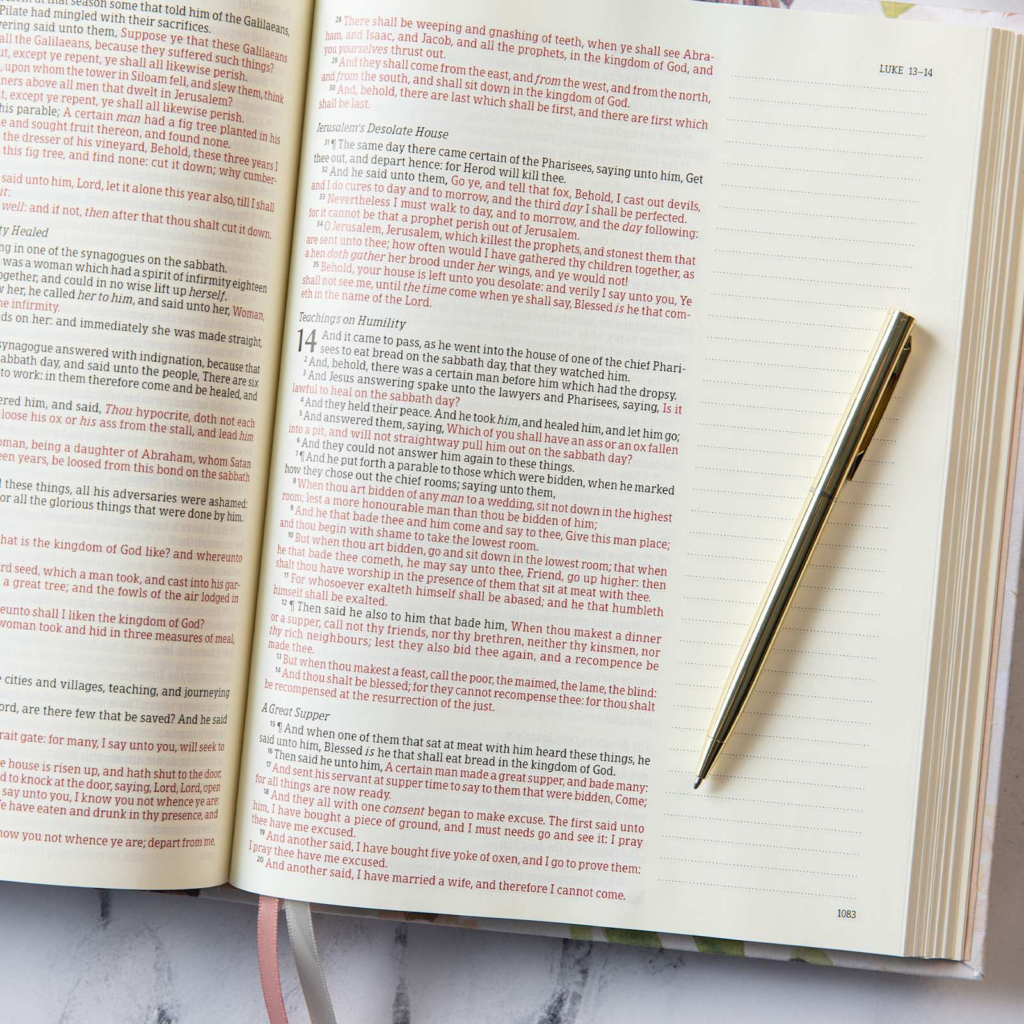 at that season some that told him of the Galilaeans,
Pilate had mingled with their sacrifices.
ering said unto them, Suppose ye that these Galilaeans
all the Galilaeans, because they suffered such things?
ut, except ye repent, ye shall all likewise perish.
, upon whom the tower in Siloam fell, and slew them, think
ners above all men that dwelt in Jerusalem?
t, except ye repent, ye shall all likewise perish.
his parable; A certain man had a fig tree planted in his
e and sought fruit thereon, and found none.
the dresser of his vineyard, Behold, these three years I
this fig tree, and find none: cut it down; why cumber-
said unto him, Lord, let it alone this year also, till I shall
it:
well: and if not, then after that thou shalt cut it down.
ty Healed
ng in one of the synagogues on the sabbath.
was a woman which had a spirit of infirmity eighteen
ogether, and could in no wise lift up herself.
w her, he called her to him, and said unto her, Woman,
ne infirmity.
ds on her: and immediately she was made straight,
synagogue answered with indignation, because that
abbath day, and said unto the people, There are six
to work: in them therefore come and be healed, and
ered him, and said, Thou hypocrite, doth not each
loose his ox or his ass from the stall, and lead him
oman, being a daughter of Abraham, whom Satan
een years, be loosed from this bond on the sabbath
d these things, all his adversaries were ashamed:
or all the glorious things that were done by him.
hat is the kingdom of God like? and whereunto
rd seed, which a man took, and cast into his gar-
a great tree; and the fowls of the air lodged in
eunto shall I liken the kingdom of God?
woman took and hid in three measures of meal,
e cities and villages, teaching, and journeying
ord, are there few that be saved? And he said
rait gate: for many, I say unto you, will seek to
e house is risen up, and hath shut to the door,
d to knock at the door, saying, Lord, Lord, open
say unto you, I know you not whence ye are:
We have eaten and drunk in thy presence, and
now you not whence ye are; depart from me,
LUKE 13–14
28 There shall be weeping and gnashing of teeth, when ye shall see Abra-
ham, and Isaac, and Jacob, and all the prophets, in the kingdom of God, and
you yourselves thrust out.
29 And they shall come from the east, and from the west, and from the north,
and from the south, and shall sit down in the kingdom of God.
30 And, behold, there are last which shall be first, and there are first which
shall be last.
Jerusalem's Desolate House
31 ¶ The same day there came certain of the Pharisees, saying unto him, Get
thee out, and depart hence: for Herod will kill thee.
32 And he said unto them, Go ye, and tell that fox, Behold, I cast out devils,
and I do cures to day and to morrow, and the third day I shall be perfected.
33 Nevertheless I must walk to day, and to morrow, and the day following:
for it cannot be that a prophet perish out of Jerusalem.
34 O Jerusalem, Jerusalem, which killest the prophets, and stonest them that
are sent unto thee; how often would I have gathered thy children together, as
a hen doth gather her brood under her wings, and ye would not!
35 Behold, your house is left unto you desolate: and verily I say unto you, Ye
shall not see me, until the time come when ye shall say, Blessed is he that com-
eth in the name of the Lord.
Teachings on Humility
14 And it came to pass, as he went into the house of one of the chief Phari-
sees to eat bread on the sabbath day, that they watched him.
2 And, behold, there was a certain man before him which had the dropsy.
3 And Jesus answering spake unto the lawyers and Pharisees, saying, Is it
lawful to heal on the sabbath day?
4 And they held their peace. And he took him, and healed him, and let him go;
5 And answered them, saying, Which of you shall have an ass or an ox fallen
into a pit, and will not straightway pull him out on the sabbath day?
6 And they could not answer him again to these things.
7 ¶ And he put forth a parable to those which were bidden, when he marked
how they chose out the chief rooms; saying unto them,
8 When thou art bidden of any man to a wedding, sit not down in the highest
room; lest a more honourable man than thou be bidden of him;
9 And he that bade thee and him come and say to thee, Give this man place;
and thou begin with shame to take the lowest room.
10 But when thou art bidden, go and sit down in the lowest room; that when
he that bade thee cometh, he may say unto thee, Friend, go up higher: then
shalt thou have worship in the presence of them that sit at meat with thee.
11 For whosoever exalteth himself shall be abased; and he that humbleth
himself shall be exalted.
12 ¶ Then said he also to him that bade him, When thou makest a dinner
or a supper, call not thy friends, nor thy brethren, neither thy kinsmen, nor
thy rich neighbours; lest they also bid thee again, and a recompence be
made thee.
13 But when thou makest a feast, call the poor, the maimed, the lame, the blind:
14 And thou shalt be blessed; for they cannot recompense thee: for thou shalt
be recompensed at the resurrection of the just.
A Great Supper
15 ¶ And when one of them that sat at meat with him heard these things, he
said unto him, Blessed is he that shall eat bread in the kingdom of God.
16 Then said he unto him, A certain man made a great supper, and bade many:
17 And sent his servant at supper time to say to them that were bidden, Come;
for all things are now ready.
18 And they all with one consent began to make excuse. The first said unto
him, I have bought a piece of ground, and I must needs go and see it: I pray
thee have me excused.
19 And another said, I have bought five yoke of oxen, and I go to prove them:
I pray thee have me excused.
20 And another said, I have married a wife, and therefore I cannot come.
1083